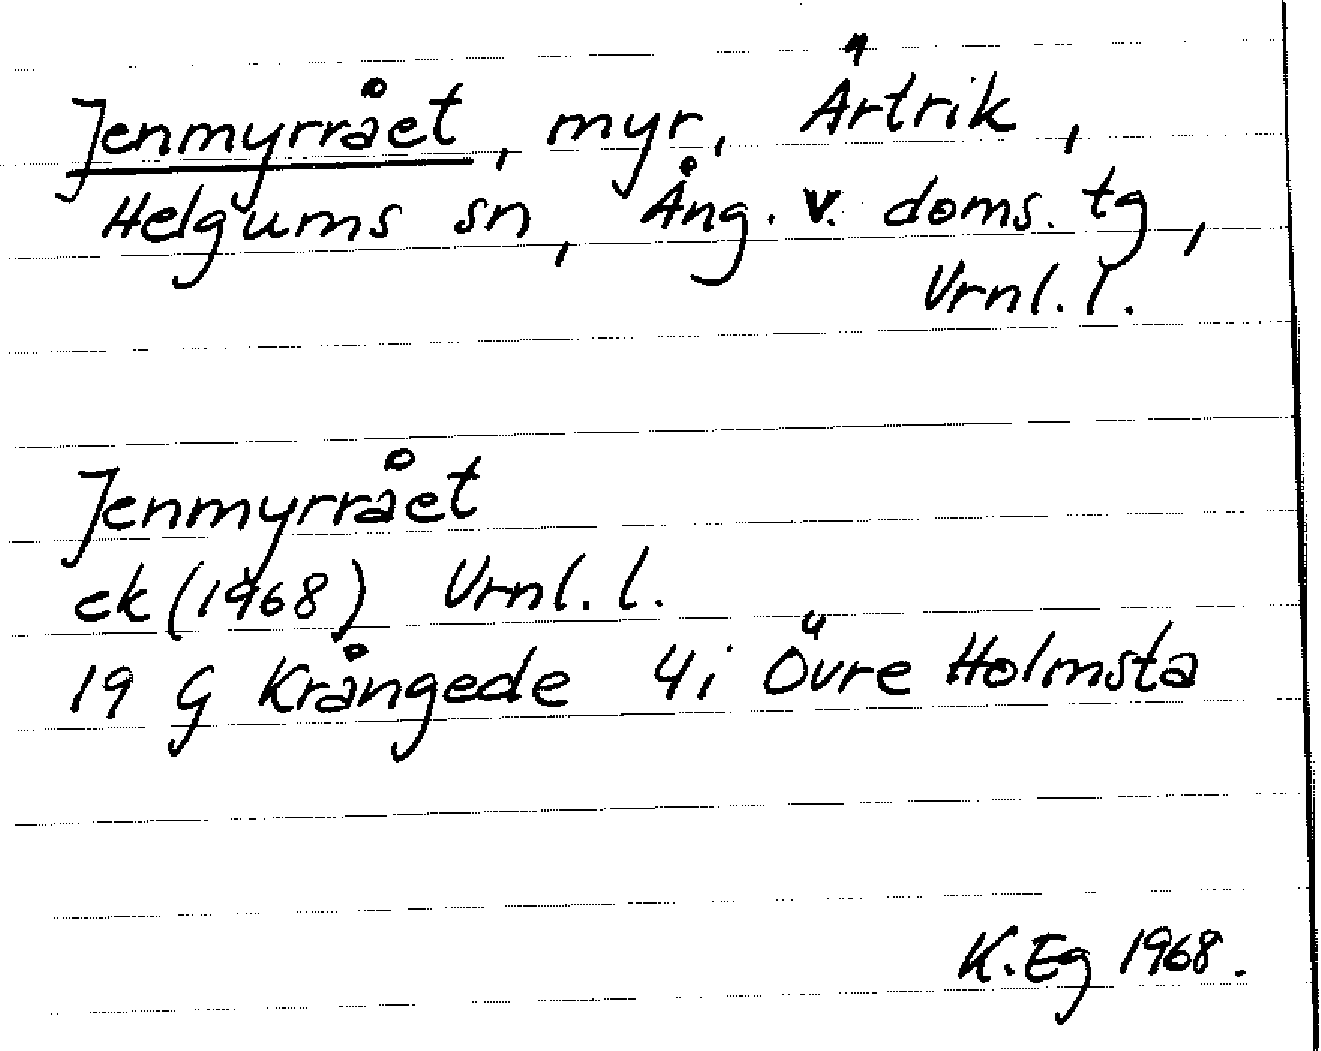 Jenmyrrået, myr, Ärtrik,
Helgums sn, Ång. v. doms. tg,
Vrnl. l.
Jenmyrrået
ek (1968) Vrnl. l.
19 G Krångede 4i Övre Holmsta
K. Eg 1968.